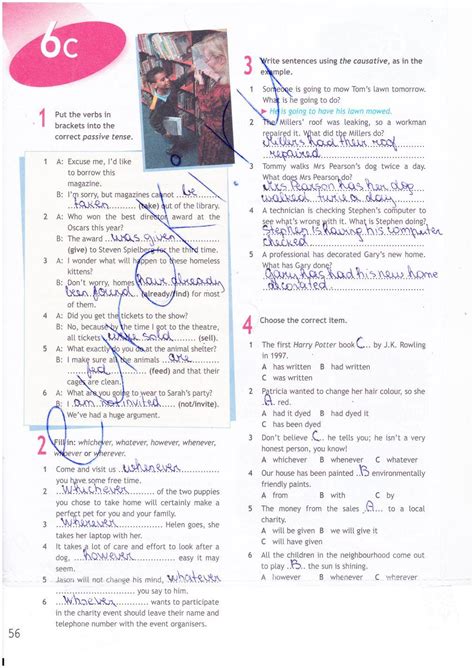 6c
1 Put the verbs in
brackets into the
correct passive tense.
1 A: Excuse me, I'd like
to borrow this
magazine.
B: I'm sorry, but magazines cannot be
taken (take) out of the library.
2 A: Who won the best director award at the
Oscars this year?
B: The award ...was given...
(give) to Steven Spielberg for the third time.
3 A: I wonder what will happen to these homeless
kittens?
B: Don't worry, homes have already
been found (already/find) for most
of them.
4 A: Did you get the tickets to the show?
B: No, because by the time I got to the theatre,
all tickets were sold (sell).
5 A: What exactly do you do at the animal shelter?
B: I make sure all the animals ...are
...fed... (feed) and that their
cages are clean.
6 A: What are you going to wear to Sarah's party?
B: I am not invited (not/invite).
We've had a huge argument.
2 Fill in: whichever, whatever, however, whenever,
whoever or wherever.
1 Come and visit us ...whenever...
you have some free time.
2 ...Whichever... of the two puppies
you chose to take home will certainly make a
perfect pet for you and your family.
3 ...Wherever... Helen goes, she
takes her laptop with her.
4 It takes a lot of care and effort to look after a
dog, ...however... easy it may
seem.
5 Jason will not change his mind, whatever
... you say to him.
6 ...Whoever... wants to participate
in the charity event should leave their name and
telephone number with the event organisers.
3 Write sentences using the causative, as in the
example.
1 Someone is going to mow Tom's lawn tomorrow.
What is he going to do?
► He is going to have his lawn mowed.
2 The Millers' roof was leaking, so a workman
repaired it. What did the Millers do?
Millers had their roof
repaired
3 Tommy walks Mrs Pearson's dog twice a day.
What does Mrs Pearson do?
Mrs Pearson has her dog
walked twice a day
4 A technician is checking Stephen's computer to
see what's wrong with it. What is Stephen doing?
Stephen is having his computer
checked
5 A professional has decorated Gary's new home.
What has Gary done?
Gary has had his new home
decorated
4 Choose the correct item.
1 The first Harry Potter book C... by J.K. Rowling
in 1997.
A has written B had written
C was written
2 Patricia wanted to change her hair colour, so she
A red.
A had it dyed B had dyed it
C has been dyed
3 Don't believe C. he tells you; he isn't a very
honest person, you know!
A whichever B whenever C whatever
4 Our house has been painted ..B environmentally
friendly paints.
A from B with C by
5 The money from the sales ..A... to a local
charity.
A will be given B we will give it
C will have given
6 All the children in the neighbourhood come out
to play ..B.. the sun is shining.
A however B whenever C wherever
56